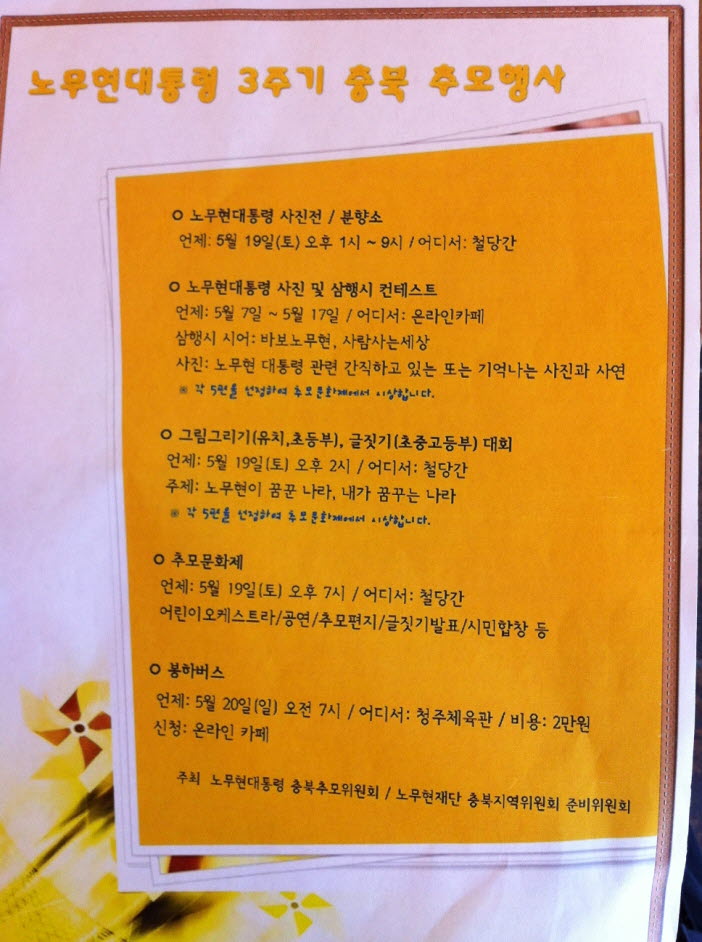 노무현대통령 3주기 충북 추모행사
○ 노무현대통령 사진전 / 분향소
언제: 5월 19일(토) 오후 1시 ~ 9시 / 어디서: 철당간
○ 노무현대통령 사진 및 삼행시 컨테스트
언제: 5월 7일 ~ 5월 17일 / 어디서: 온라인카페
삼행시 시어: 바보노무현, 사람사는세상
사진: 노무현 대통령 관련 간직하고 있는 또는 기억나는 사진과 사연
※ 각 5편을 선정하여 추모문화제에서 시상합니다.
○ 그림그리기(유치,초등부), 글짓기(초중고등부) 대회
언제: 5월 19일(토) 오후 2시 / 어디서: 철당간
주제: 노무현이 꿈꾼 나라, 내가 꿈꾸는 나라
※ 각 5편을 선정하여 추모문화제에서 시상합니다.
○ 추모문화제
언제: 5월 19일(토) 오후 7시 / 어디서: 철당간
어린이오케스트라/공연/추모편지/글짓기발표/시민합창 등
○ 봉하버스
언제: 5월 20일(일) 오전 7시 / 어디서: 청주체육관 / 비용: 2만원
신청: 온라인 카페
주최 노무현대통령 충북추모위원회 / 노무현재단 충북지역위원회 준비위원회